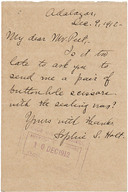 Adalazar,
Dec. 9, 1912-
My dear Mr. Peet,
Is it too
late to ask you to
send me a pair of
buttonhole scissors
with the sealing wax?
Yours with thanks
Sophie S. Holt.